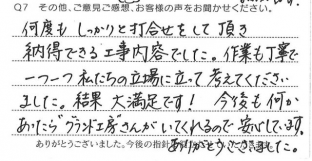 Q7 その他、ご意見ご感想、お客様の声をお聞かせください。
何度も しっかりと 打合せをして 頂き
納得できる工事内容でした。作業も丁寧で
一つ一つ 私たちの立場に立って 考えてください
ました。結果 大満足です！ 今後も何か
あったら"グラント工房"さんがいてくれるので 安心しています。
ありがとうございました。今後の指針
ありがとうございました。